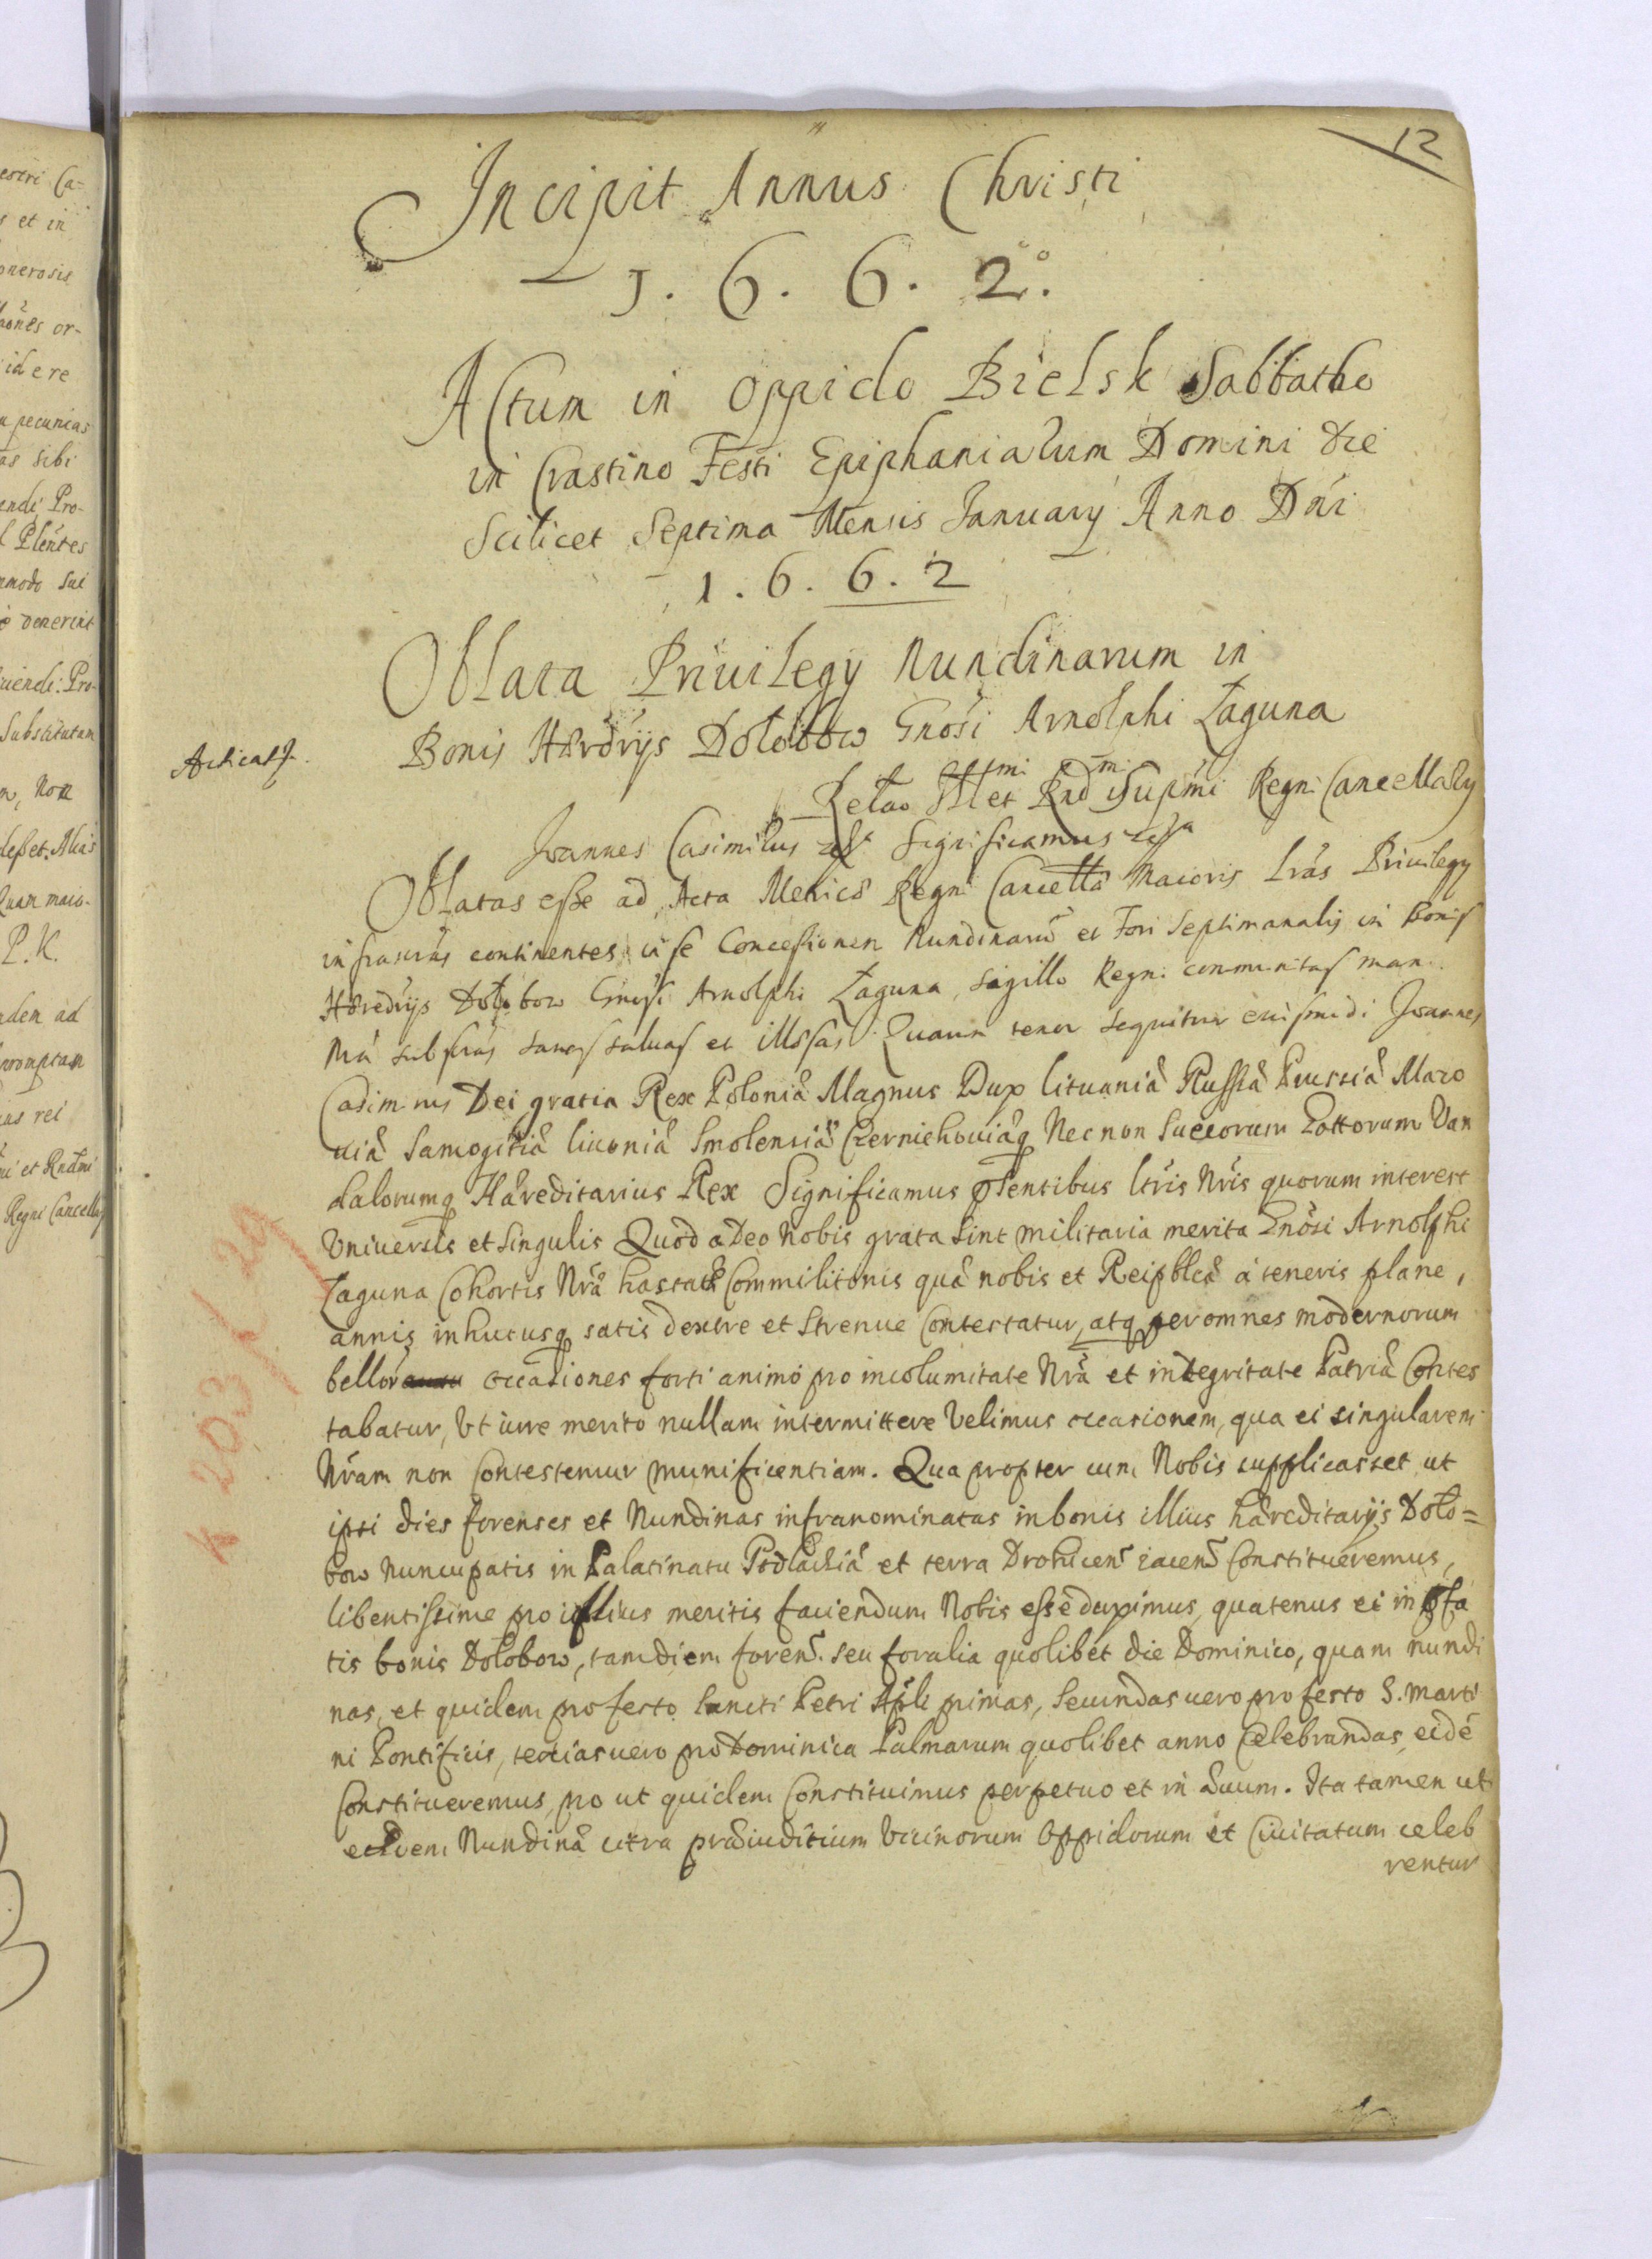 12
Incipit Annus Christi
1. 6. 6. 2°.
Actum in oppido Bielsk Sabbatho
in Crastino Festi Epiphaniarum Domini die
Scilicet Septima Mensis Januarÿ Anno Dńi
1. 6. 6. 2
Oblata Priuilegÿ Nundinarum in
Bonis Hærdrÿs Dołobow Gnosi Arnolphi Łaguna
Relao Illmi et Rndmi Supmi Regni Cancellarÿ
Joannes Casimirus Significamus
Oblatas esse ad Acta Metricæ Regni Cancellæ Maioris Lrás Priuilegÿ
infrascrás continentes in se Concessionem Nundinarũ et Fori Septimanalis in Bonis
Hæredrÿs Dołobow Gnosi Arnolphi Łaguna, sigillo Regni communitas man
Nrá subscrás sanas saluas et illæsas Quarum tenor sequitur eiusmodi Joannes
Casimirus Dei gratia Rex Poloniæ Magnus Dux Lituaniæ Russiæ Prussiæ Mazo
uiæ Samogitiæ Liuoniæ Smolensiæ Czerniechouiæq Nec non Suecorum Gottorum Van
dalorumq Hæreditarius Rex Significamus pñsentibus ltris Nris quorum interest
Vniuersis et singulis Quod adeo Nobis grata sint militaria merita Gnosi Arnolphi
Łaguna Cohortis Nræ hastatæ Commilitonis quæ nobis et Reipblcæ à teneris plane,
annis in hucusq satis dextre et strenue Contestatur, atq per omnes modernorum
bellor occasiones forti animo pro incolumitate Nrá et integritate Patriæ Contes
tabatur, Vt iure merito nullam intermittere Velimus occasionem, qua ei singularem
Nram non Contestemur munificentiam. Qua propter cum Nobis supplicasset ut
ipsi dies forenses et Nundinas infranominatas in bonis illius hæreditarÿs Doło=
bow nuncupatis in Palatinatu Podlachiæ et terra Drohicen iacen Constitueremus,
libentissime pro illius meritis faciendum Nobis esse duximus, quatenus ei in pfa
tis bonis Dołobow, tam diem foren. seu foralia quolibet die Dominico, quam nundi
nas, et quidem pro festo Sancti Petri Apli primas, Secundas uero pro festo S. Marti
ni Pontificis, tertias uero pro Dominica Palmarum quolibet anno Celebrandas, eidē
Constitueremus, pro ut quidem Constituimus perpetuo et in æuum. Ita tamen ut
eædem Nundinæ citra præiuditium Vicinorum Oppidorum et Ciuitatum celeb
rentur
K 203 f 29